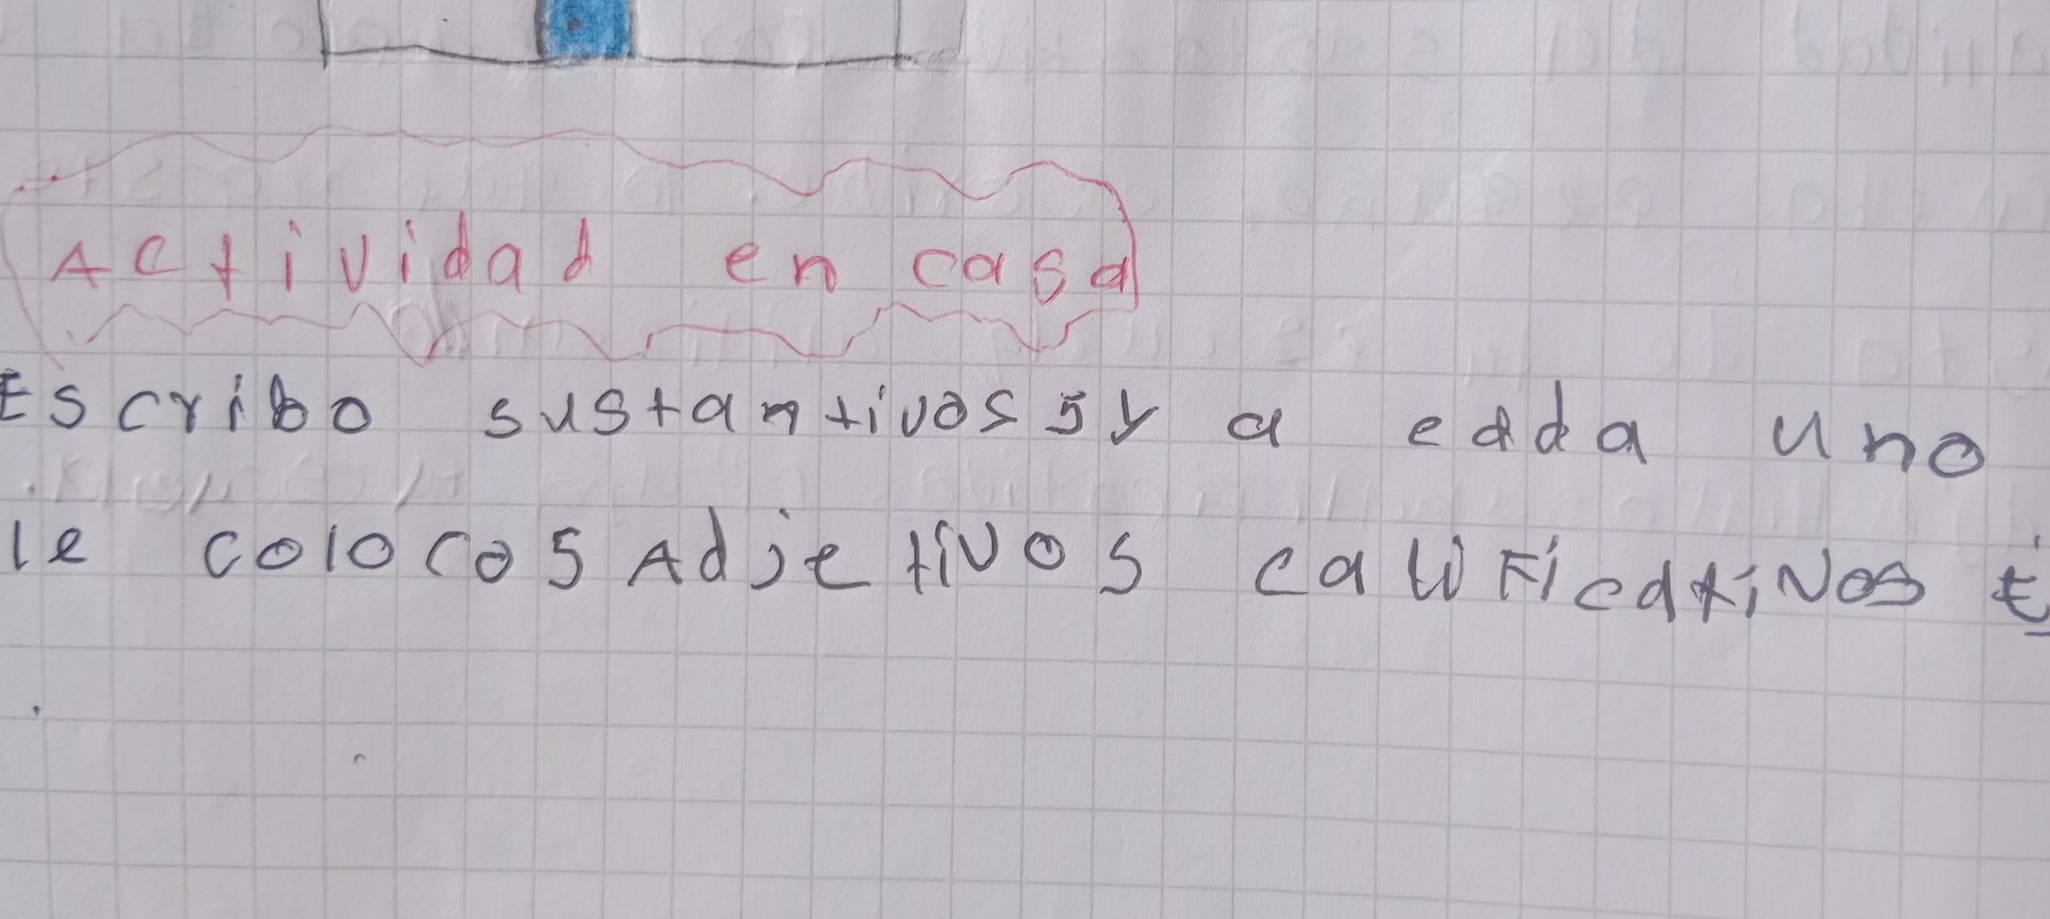 Actividad en casa
Escribo sustantivos 5 y a cada uno
le coloco 5 Adjetivos calificativos